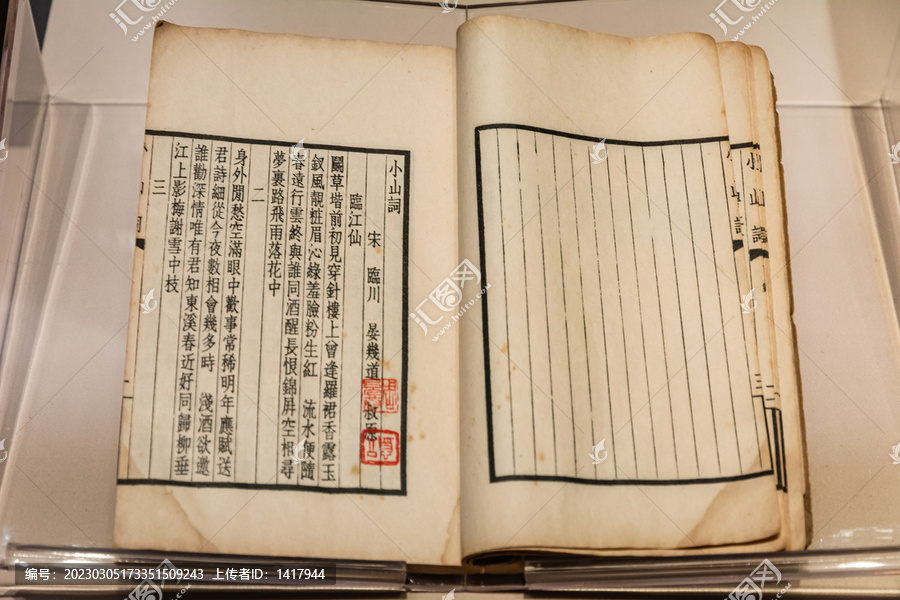 小山詞
宋 臨川 晏幾道 叔原
臨江仙
鬭草堦前初見穿針樓上曾逢羅裙香露玉
釵風靚粧眉沁綠羞臉粉生紅 流水便隨
春遠行雲終與誰同酒醒長恨錦屏空相尋
夢裏路飛雨落花中
二
身外閒愁空滿眼中歡事常稀明年應賦送
君詩細從今夜數相會幾多時 淺酒欲邀
誰勸深情唯有君知東溪春近好同歸柳垂
江上影梅謝雪中枝
三
小山詞
汇图网
www.huitu.com
编号:20230305173351509243 上传者ID:1417944